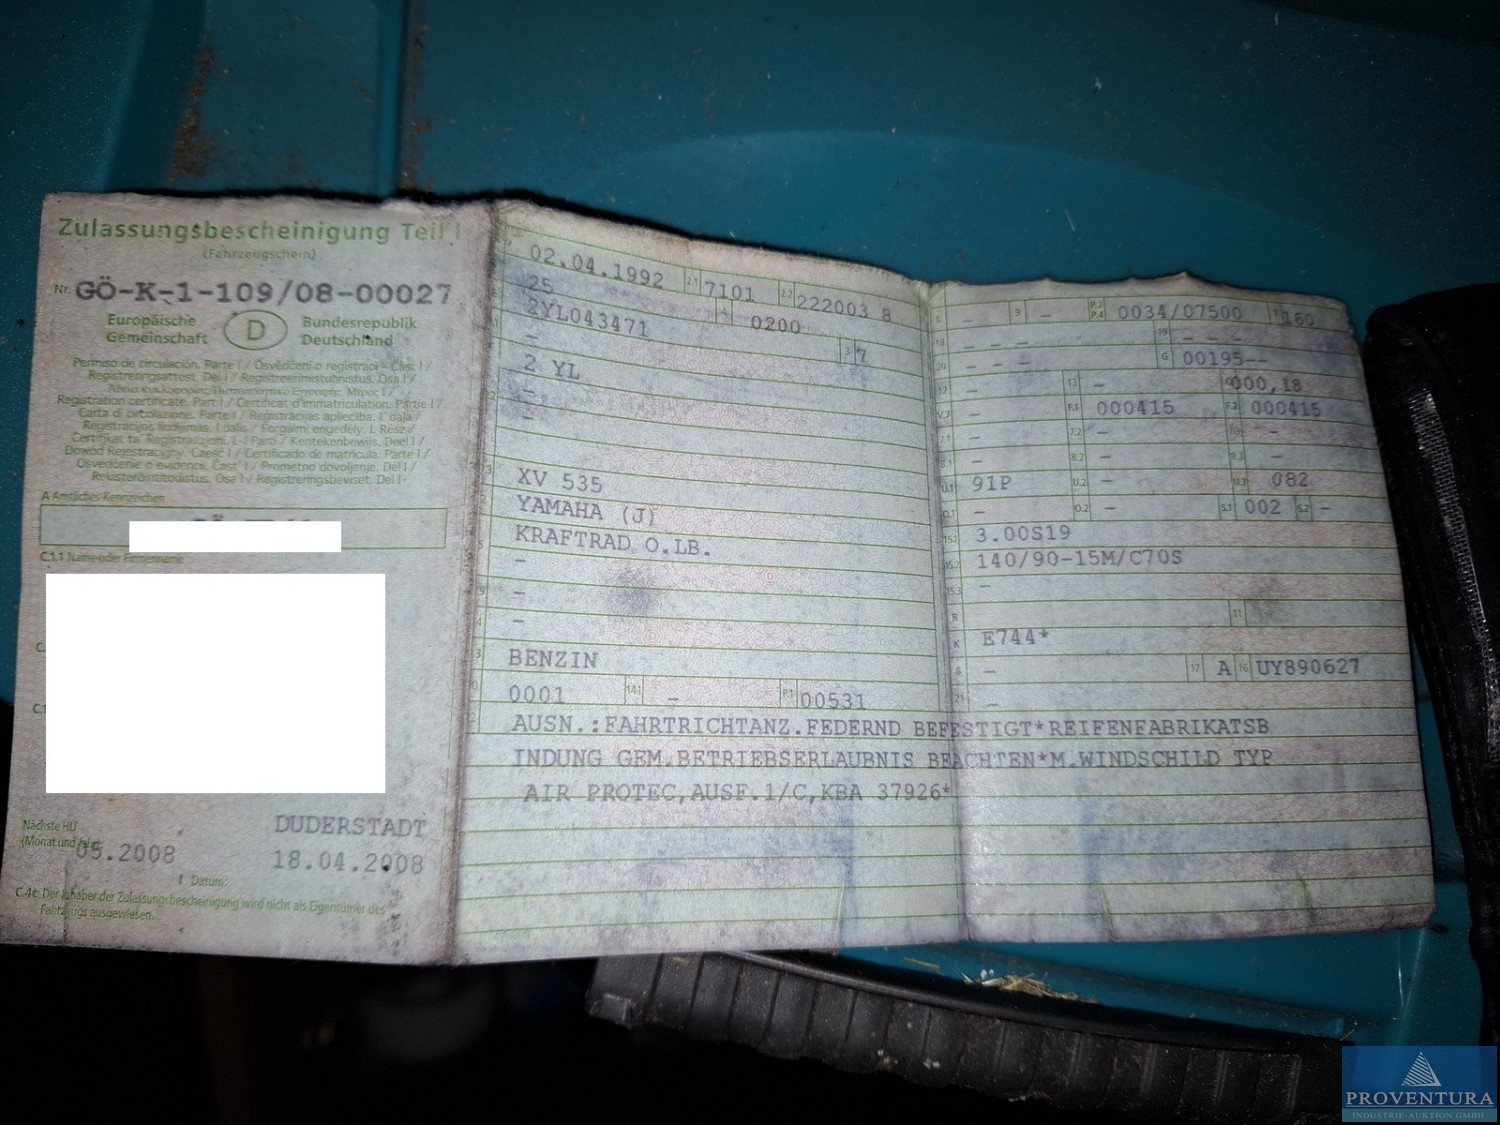 Zulassungsbescheinigung Teil I
(Fahrzeugschein)
Nr. GÖ-K-1-109/08-00027
Europäische Gemeinschaft
D
Bundesrepublik Deutschland
Permiso de circulación. Parte I / Osvědčení o registraci - Část I /
Registreringsattest. Del I / Registreerimistunnistus. Osa I /
Registration certificate. Part I / Certificat d'immatriculation. Partie I /
Carta di circolazione. Parte I / Reģistrācijas apliecība. I. daļa /
Registracijos liudijimas. I dalis / Forgalmi engedély. I. Rész /
Certifikat ta' Reġistrazzjoni. L-I Parti / Kentekenbewijs. Deel I /
Dowód Rejestracyjny. Część I / Certificado de matrícula. Parte I /
Osvedčenie o evidencii. Časť I / Prometno dovoljenje. Del I /
Rekisteröintitodistus. Osa I / Registreringsbeviset. Del I
A Amtliches Kennzeichen
C.1.1 Name oder Firmenname
Nächste HU
(Monat und Jahr)
05.2008
DUDERSTADT
18.04.2008
I Datum:
C.4c Der Inhaber der Zulassungsbescheinigung wird nicht als Eigentümer des
Fahrzeugs ausgewiesen.
02.04.1992 2.1 7101 2.2 222003 8
25 4 0200
2YL043471
– 3 7
2 YL
–
–
XV 535
YAMAHA (J)
KRAFTRAD O.LB.
–
–
–
BENZIN
0001 14.1 – P.1 00531
– 9 – P.2 P.4 0034/07500 T 160
18 – – – 19 – – –
20 – – – G 00195--
12 – 13 – Q 000,18
V.7 – F.1 000415 F.2 000415
7.1 – 7.2 – –
8.1 – 8.2 – 8.3 –
U.1 91P U.2 – U.3 082
O.1 – O.2 – S.1 002 S.2 –
15.1 3.00S19
15.2 140/90-15M/C70S
15.3 –
R 11
K E744*
6 – 17 A 16 UY890627
21 –
AUSN.:FAHRTRICHTANZ.FEDERND BEFESTIGT*REIFENFABRIKATSB
INDUNG GEM.BETRIEBSERLAUBNIS BEACHTEN*M.WINDSCHILD TYP
AIR PROTEC,AUSF.1/C,KBA 37926*
PROVENTURA
INDUSTRIE-AUKTION GMBH